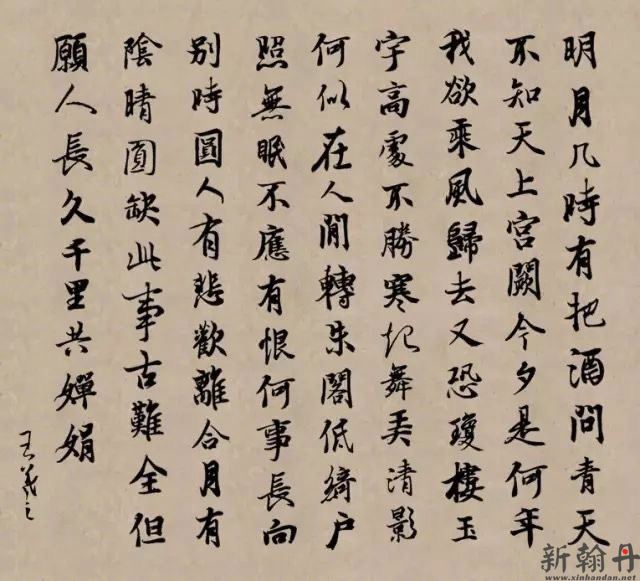 明月几時有把酒問青天
不知天上宮闕今夕是何年
我欲乘風歸去又恐瓊樓玉
宇高處不勝寒起舞弄清影
何似在人間轉朱閣低綺户
照無眠不應有恨何事長向
别時圓人有悲歡離合月有
陰晴圓缺此事古難全但
願人長久千里共嬋娟
王羲之
新翰丹
www.xinhandan.net